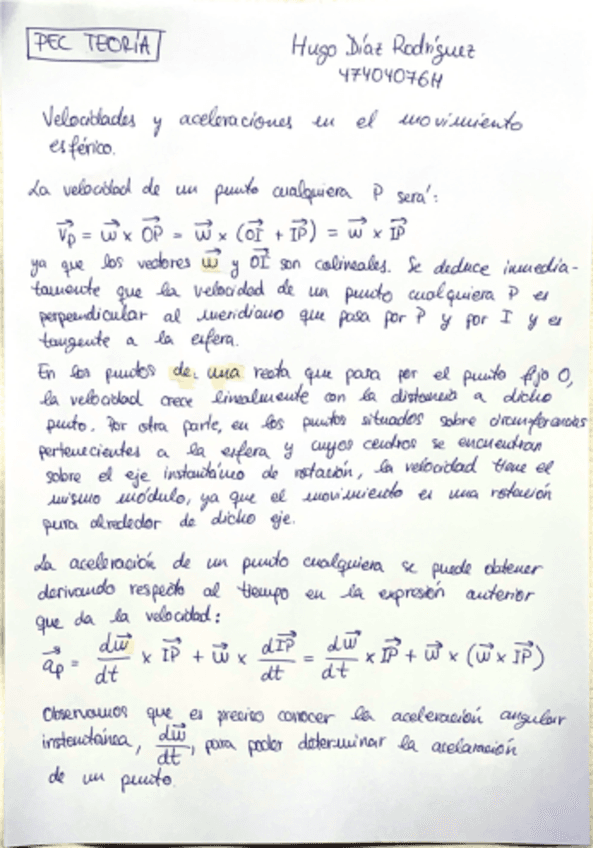 PEC TEORÍA
Hugo Díaz Rodríguez
47404076H
Velocidades y aceleraciones en el movimiento
esférico.
La velocidad de un punto cualquiera P será:
v⃗p = w⃗ x OP⃗ = w⃗ x (OI⃗ + IP⃗) = w⃗ x IP⃗
ya que los vectores w⃗ y OI⃗ son colineales. Se deduce inmedia-
tamente que la velocidad de un punto cualquiera P es
perpendicular al meridiano que pasa por P y por I y es
tangente a la esfera.
En los puntos de una recta que pasa por el punto fijo O,
la velocidad crece linealmente con la distancia a dicho
punto. Por otra parte, en los puntos situados sobre circunferencias
pertenecientes a la esfera y cuyos centros se encuentran
sobre el eje instantáneo de rotación, la velocidad tiene el
mismo módulo, ya que el movimiento es una rotación
pura alrededor de dicho eje.
La aceleración de un punto cualquiera se puede obtener
derivando respecto al tiempo en la expresión anterior
que da la velocidad:
a⃗p = dw⃗/dt x IP⃗ + w⃗ x dIP⃗/dt = dw⃗/dt x IP⃗ + w⃗ x (w⃗ x IP⃗)
Observamos que es preciso conocer la aceleración angular
instantánea, dw⃗/dt, para poder determinar la aceleración
de un punto.